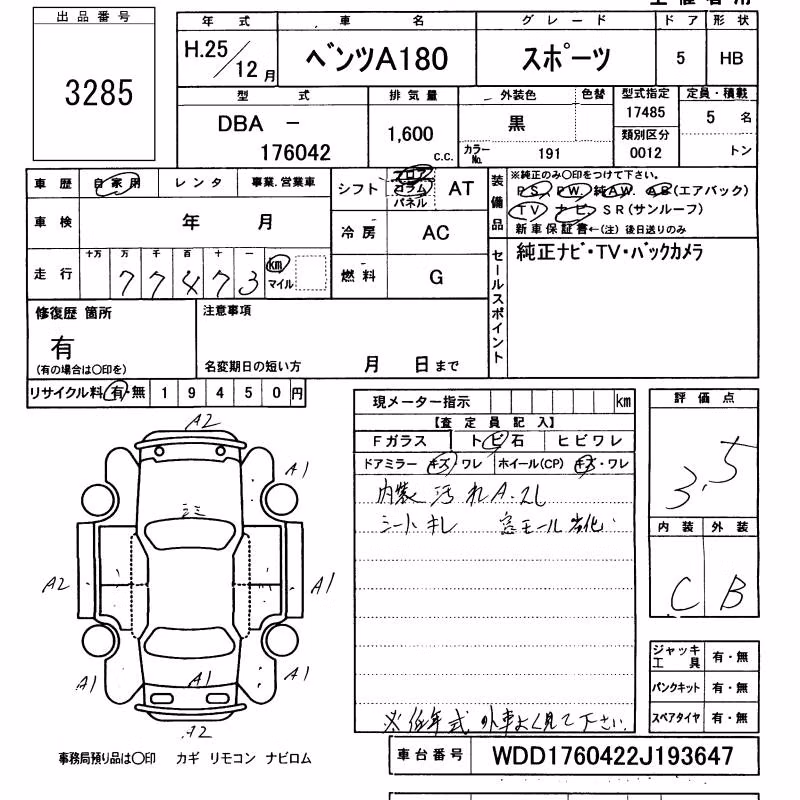 出品番号
3285
年式 車名 グレード ドア 形状
H.25/12月 ベンツA180 スポーツ 5 HB
型式 排気量 外装色 色替 型式指定 定員・積載
DBA － 176042 1,600 c.c. 黒 17485 5 名
カラーNo. 191 類別区分 0012 トン
車歴 自家用 レンタ 事業.営業車
車検 年 月
走行 十万 万 千 百 十 一
77473 km マイル
シフト フロア コラム パネル AT
冷房 AC
燃料 G
装備品 ※純正のみ〇印をつけて下さい。
PS. PW. 純AW. AB(エアバック)
TV ナビ. SR(サンルーフ)
新車保証書←(注) 後日送りのみ
セールスポイント
純正ナビ・TV・バックカメラ
修復歴 箇所
有
(有の場合は〇印を)
注意事項
名変期日の短い方 月 日まで
リサイクル料 有・無 19450円
現メーター指示 km
【査定員記入】
Fガラス トビ石 ヒビワレ
ドアミラー キズ・ワレ ホイール(CP) キズ・ワレ
内装 汚れ A.2L
シート キレ 窓モール劣化
※低年式 外車よく見て下さい.
評価点
3.5
内装 外装
C B
ジャッキ 工具 有・無
パンクキット 有・無
スペアタイヤ 有・無
A2
A1
A2
A1
A1
A1
A1
A2
事務局預り品は〇印 カギ リモコン ナビロム
車台番号 WDD1760422J193647